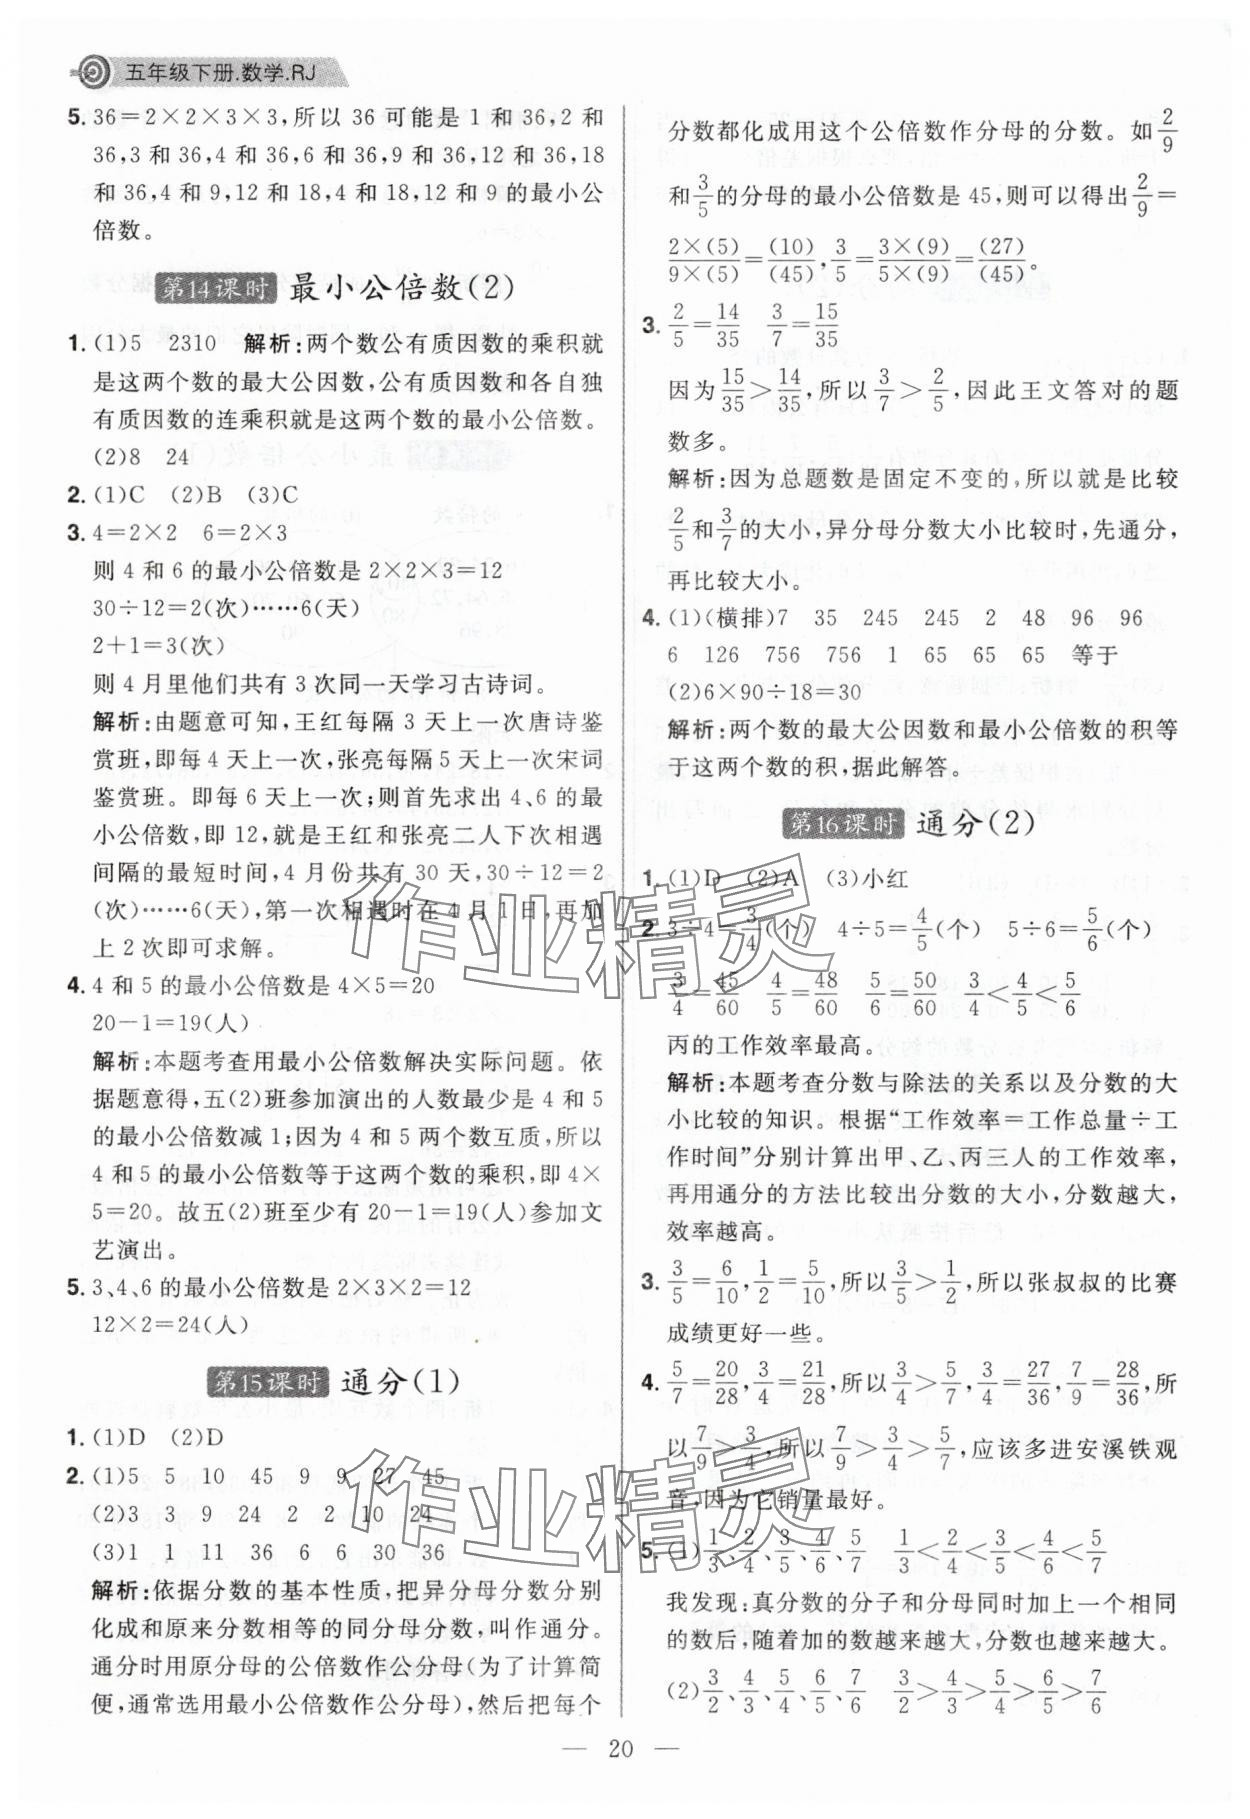 五年级下册.数学.RJ
5. 36=2×2×3×3,所以 36 可能是 1 和 36,2 和
36,3 和 36,4 和 36,6 和 36,9 和 36,12 和 36,18
和 36,4 和 9,12 和 18,4 和 18,12 和 9 的最小公
倍数。
第14课时 最小公倍数(2)
1. (1)5 2310 解析:两个数公有质因数的乘积就
是这两个数的最大公因数,公有质因数和各自独
有质因数的连乘积就是这两个数的最小公倍数。
(2)8 24
2. (1)C (2)B (3)C
3. 4=2×2 6=2×3
则 4 和 6 的最小公倍数是 2×2×3=12
30÷12=2(次)……6(天)
2+1=3(次)
则 4 月里他们共有 3 次同一天学习古诗词。
解析:由题意可知,王红每隔 3 天上一次唐诗鉴
赏班,即每 4 天上一次,张亮每隔 5 天上一次宋词
鉴赏班。即每 6 天上一次;则首先求出 4、6 的最
小公倍数,即 12,就是王红和张亮二人下次相遇
间隔的最短时间,4 月份共有 30 天,30÷12=2
(次)……6(天),第一次相遇时在 4 月 1 日,再加
上 2 次即可求解。
4. 4 和 5 的最小公倍数是 4×5=20
20-1=19(人)
解析:本题考查用最小公倍数解决实际问题。依
据题意得,五(2)班参加演出的人数最少是 4 和 5
的最小公倍数减 1;因为 4 和 5 两个数互质,所以
4 和 5 的最小公倍数等于这两个数的乘积,即 4×
5=20。故五(2)班至少有 20-1=19(人)参加文
艺演出。
5. 3、4、6 的最小公倍数是 2×3×2=12
12×2=24(人)
第15课时 通分(1)
1. (1)D (2)D
2. (1)5 5 10 45 9 9 27 45
(2)3 3 9 24 2 2 10 24
(3)1 1 11 36 6 6 30 36
解析:依据分数的基本性质,把异分母分数分别
化成和原来分数相等的同分母分数,叫作通分。
通分时用原分母的公倍数作公分母(为了计算简
便,通常选用最小公倍数作公分母),然后把每个
分数都化成用这个公倍数作分母的分数。如 2/9
和 3/5 的分母的最小公倍数是 45,则可以得出 2/9 =
2×(5)/9×(5) = (10)/(45), 3/5 = 3×(9)/5×(9) = (27)/(45)。
3. 2/5 = 14/35 3/7 = 15/35
因为 15/35 > 14/35,所以 3/7 > 2/5,因此王文答对的题
数多。
解析:因为总题数是固定不变的,所以就是比较
2/5 和 3/7 的大小,异分母分数大小比较时,先通分,
再比较大小。
4. (1)(横排)7 35 245 245 2 48 96 96
6 126 756 756 1 65 65 65 等于
(2)6×90÷18=30
解析:两个数的最大公因数和最小公倍数的积等
于这两个数的积,据此解答。
第16课时 通分(2)
1. (1)D (2)A (3)小红
2. 3÷4= 3/4 (个) 4÷5= 4/5 (个) 5÷6= 5/6 (个)
3/4 = 45/60 4/5 = 48/60 5/6 = 50/60 3/4 < 4/5 < 5/6
丙的工作效率最高。
解析:本题考查分数与除法的关系以及分数的大
小比较的知识。根据“工作效率=工作总量÷工
作时间”分别计算出甲、乙、丙三人的工作效率,
再用通分的方法比较出分数的大小,分数越大,
效率越高。
3. 3/5 = 6/10, 1/2 = 5/10,所以 3/5 > 1/2,所以张叔叔的比赛
成绩更好一些。
4. 5/7 = 20/28, 3/4 = 21/28,所以 3/4 > 5/7, 3/4 = 27/36, 7/9 = 28/36,所
以 7/9 > 3/4,所以 7/9 > 3/4 > 5/7,应该多进安溪铁观
音,因为它销量最好。
5. (1) 1/3、2/4、3/5、4/6、5/7 1/3 < 2/4 < 3/5 < 4/6 < 5/7
我发现:真分数的分子和分母同时加上一个相同
的数后,随着加的数越来越大,分数也越来越大。
(2) 3/2、4/3、5/4、6/5、7/6 3/2 > 4/3 > 5/4 > 6/5 > 7/6
— 20 —
作业精灵
作业精灵